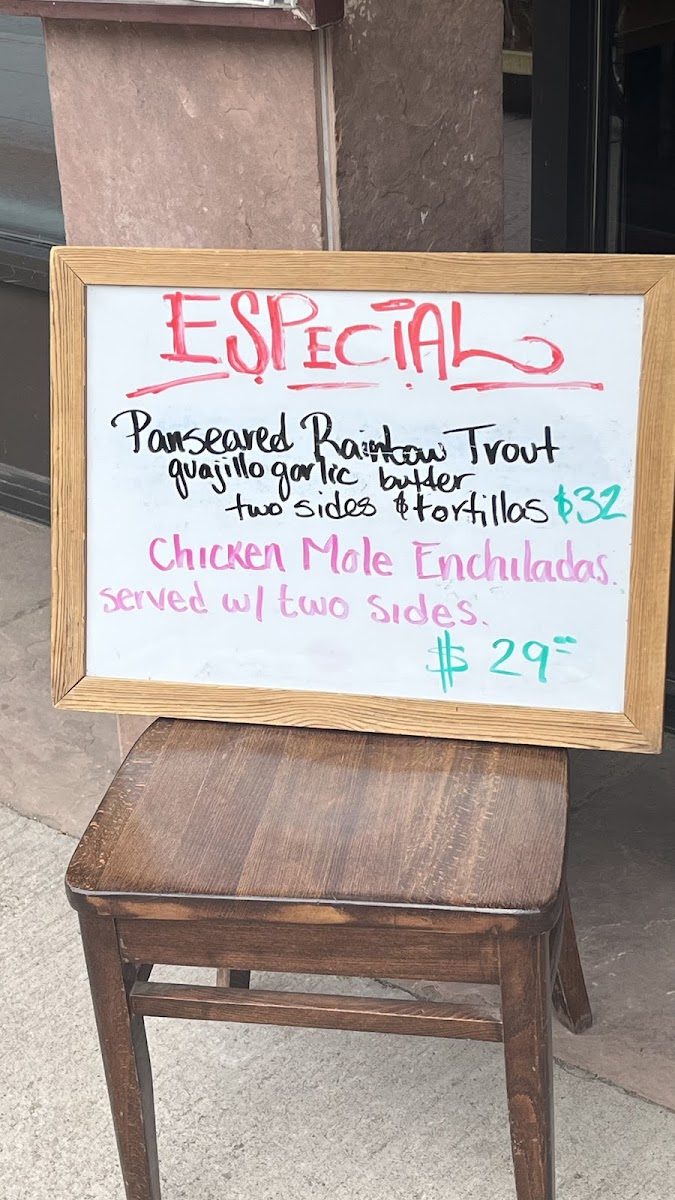 ESPECIAL
Panseared Rainbow Trout
guajillo garlic butter
two sides & tortillas $32
Chicken Mole Enchiladas.
served w/ two sides.
$29=